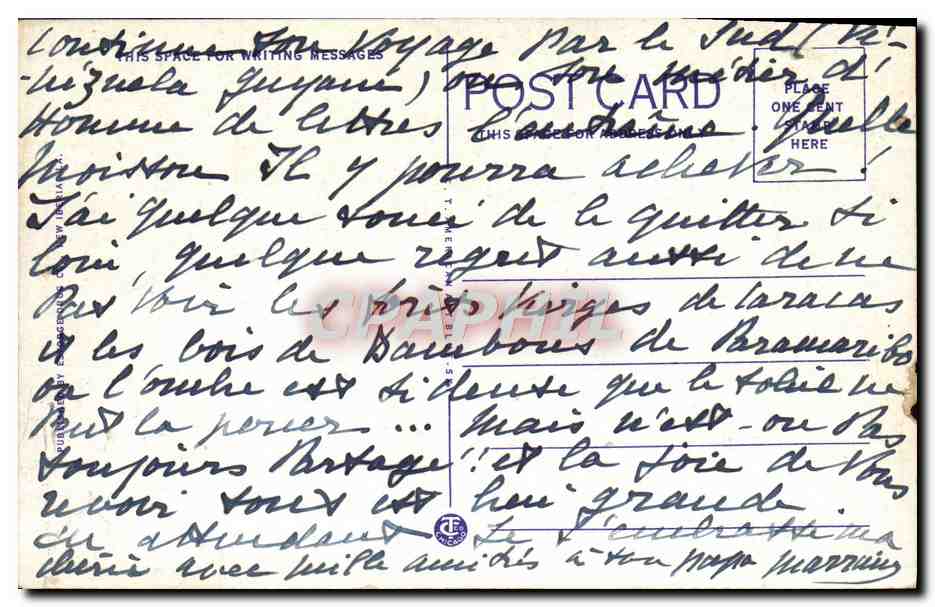 continue son voyage par le Sud (Vé-
THIS SPACE FOR WRITING MESSAGES
-nézuela Guyane) où son métier d'
POST CARD
PLACE
ONE CENT
STAMP
HERE
Homme de lettres l'entraîne. Quelle
THIS SPACE FOR ADDRESS ONLY
moisson Il y pourra achever!
J'ai quelque souci de le quitter si
loin, quelque regret aussi de ne
pas voir les forêts vierges de Caracas
CPAPHIL
et les bois de Bambous de Paramaribo
où l'ombre est si dense que le soleil ne
Peut la percer... Mais n'est-on Pas
toujours Partagé!! et la joie de vous
revoir tous est bien grande.
en attendant Je t'embrasse ma
chérie avec mille amitiés à ton papa marraine
C.T. CHICAGO